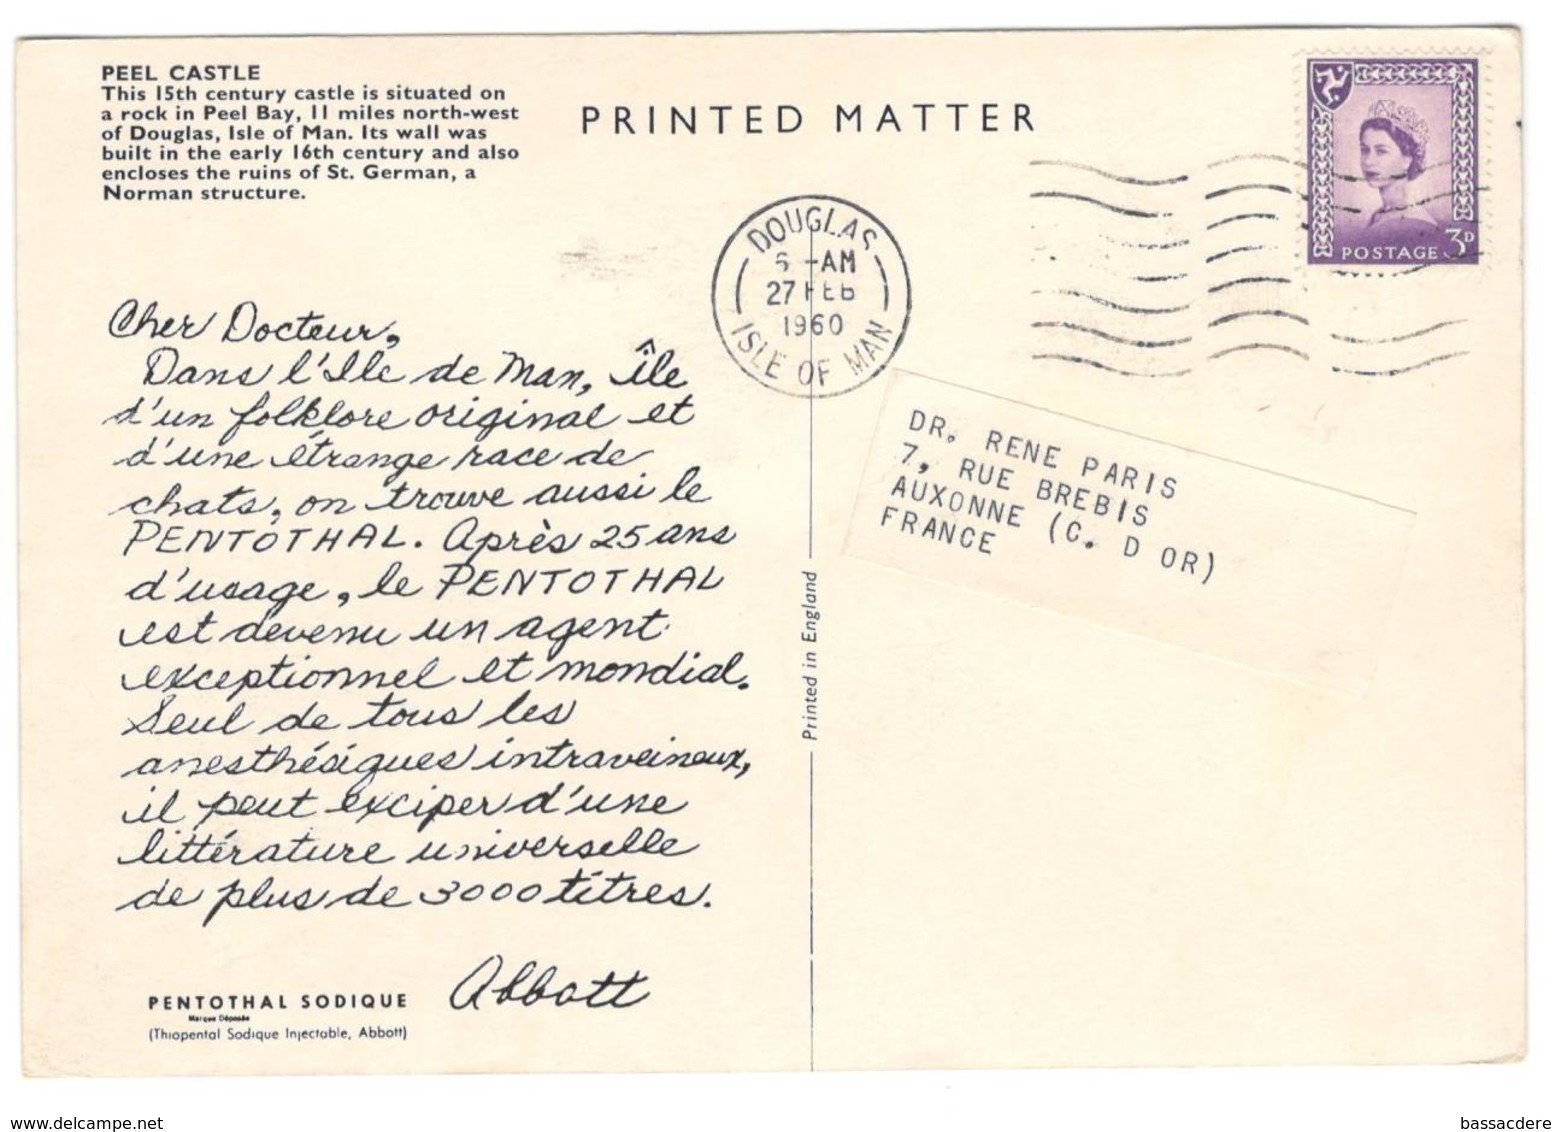 PEEL CASTLE
This 15th century castle is situated on
a rock in Peel Bay, 11 miles north-west
of Douglas, Isle of Man. Its wall was
built in the early 16th century and also
encloses the ruins of St. German, a
Norman structure.
PRINTED MATTER
POSTAGE 3D
DOUGLAS
-AM
27 FEB
1960
ISLE OF MAN
Cher Docteur,
Dans l'Ile de Man, île
d'un folklore original et
d'une étrange race de
chats, on trouve aussi le
PENTOTHAL. Après 25 ans
d'usage, le PENTOTHAL
est devenu un agent
exceptionnel et mondial.
Seul de tous les
anesthésiques intraveineux,
il peut exciper d'une
littérature universelle
de plus de 3000 titres.
Abbott
PENTOTHAL SODIQUE
Marque Déposée
(Thiopental Sodique Injectable, Abbott)
Printed in England
DR. RENE PARIS
7, RUE BREBIS
AUXONNE (C. D OR)
FRANCE
www.delcampe.net
bassacdere